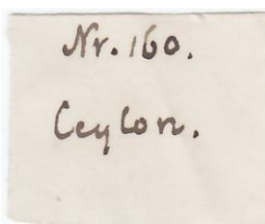 Nr. 160.
Ceylon.